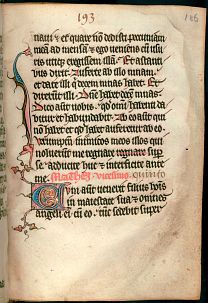 193
186
naui et quare nō dedisti pecuniam
meā ad mensā et ego veniens cū usu
ris utiqz exegissem illā. Et astanti
bus dixit. Auferte ab illo mnam.
et date illi qi decem mnas habet. Et
dixerūt. Dñe habet decē mnas.
Dico aūt vobis. qd omi habenti da
bitur et habundabit. Ab eo aūt qui
nō habet et qd habet auferetur ab eo.
inimicos meos illos qui
noluerūt me regnare sup
se. adducite huc et interficite ante
me. vicesimo quinto
Cum aūt venerit filius hois
in maiestate sua et omnes
angeli ei cū eo. tūc sedebit super